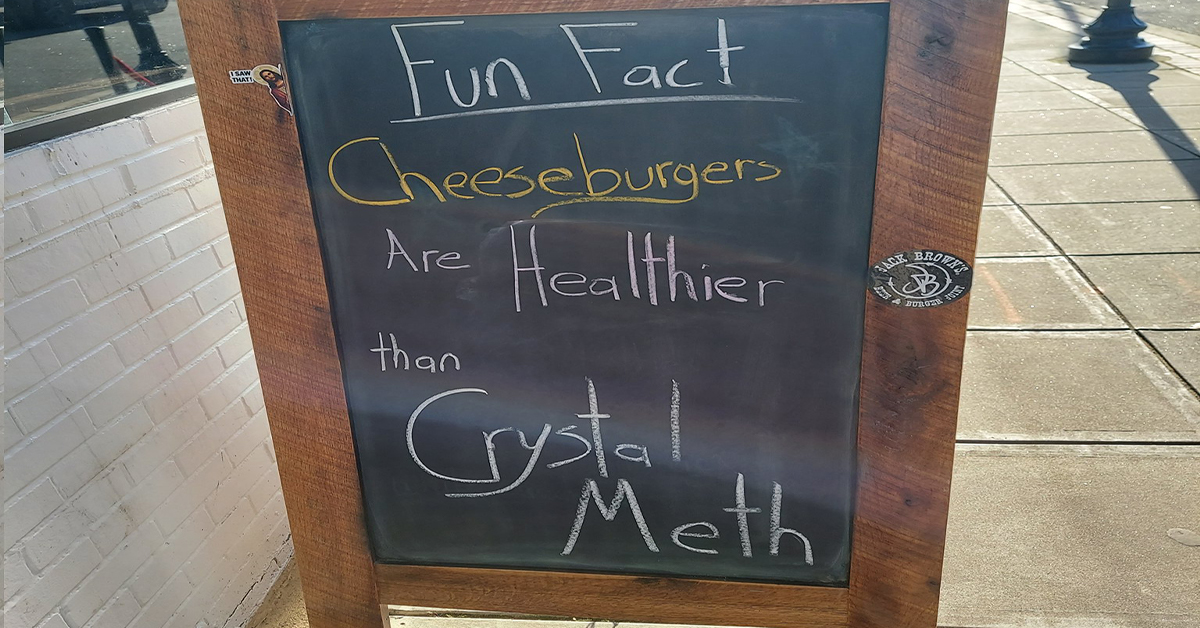 Fun Fact
Cheeseburgers
Are Healthier
than
Crystal
Meth
I SAW
THAT!
JACK BROWN'S
JB
BEER & BURGER JOINT